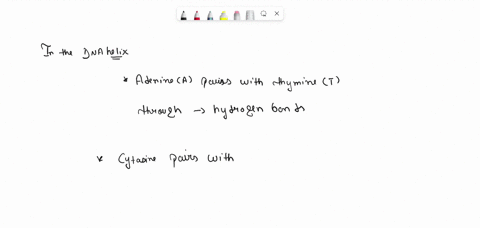 In the DNA helix
* Adenine(A) pairs with thymine(T)
through → hydrogen bonds
* Cytosine pairs with